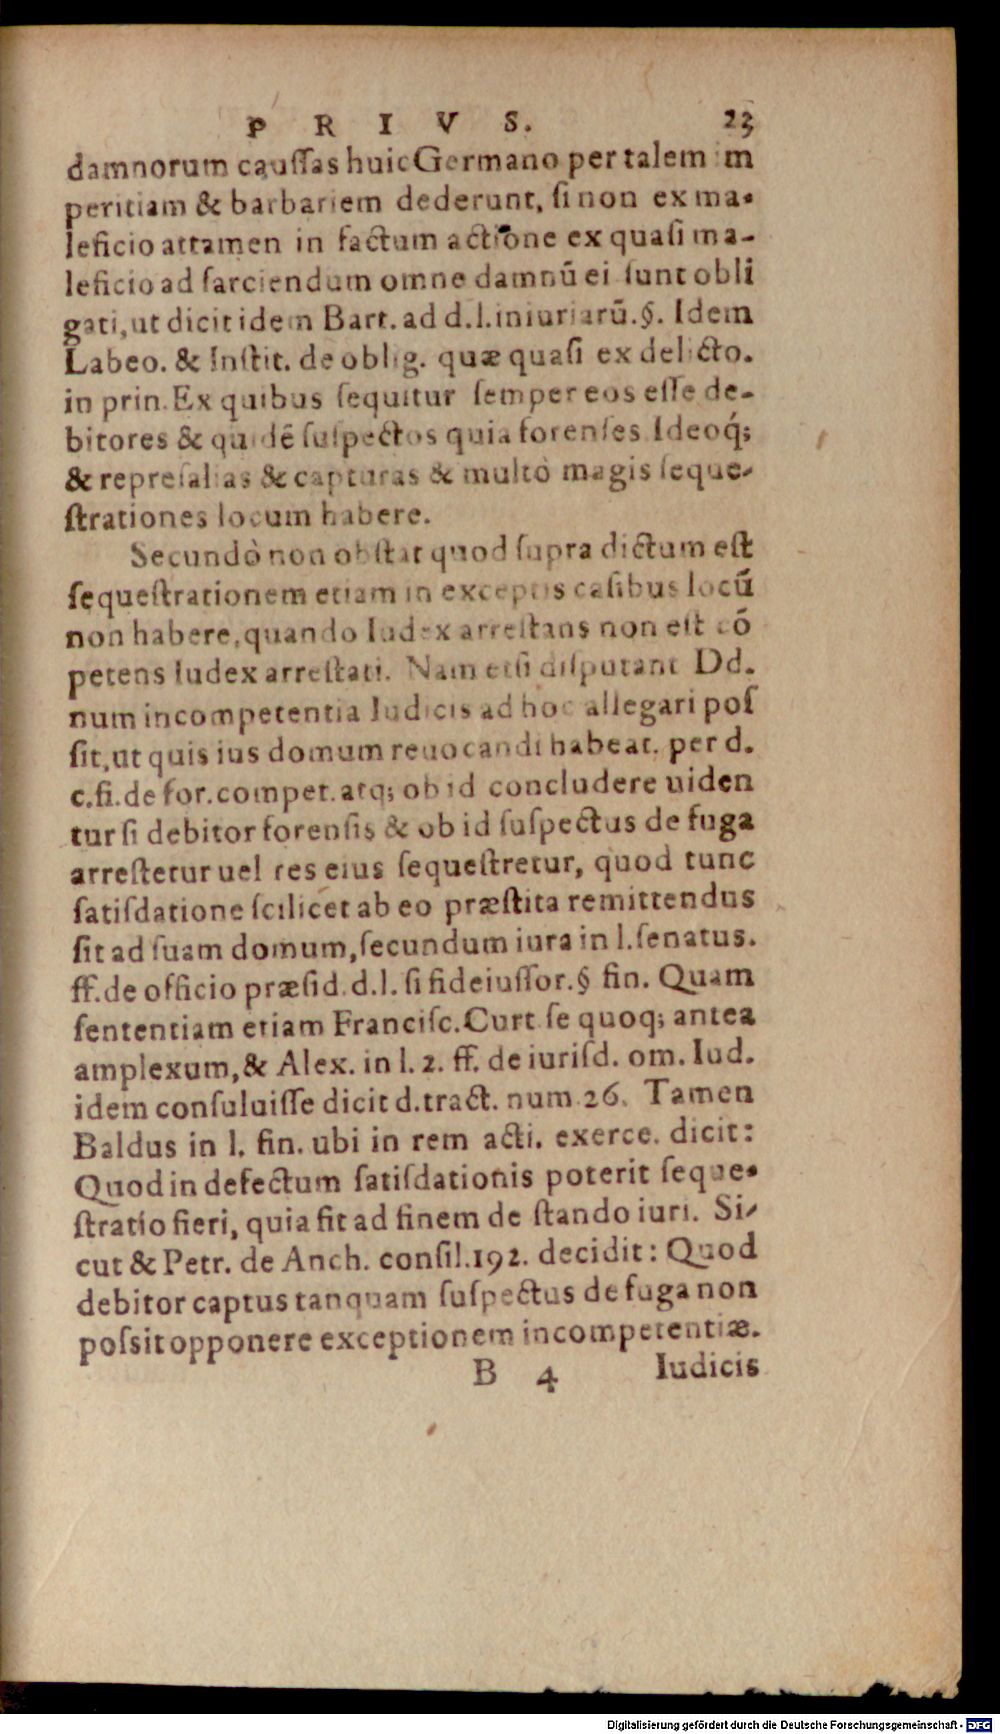 P R I V S. 23
damnorum cauſſas huic Germano per talem im
peritiam & barbariem dederunt, ſi non ex ma-
leficio attamen in factum actione ex quaſi ma-
leficio ad ſarciendum omne damnū ei ſunt obli
gati, ut dicit idem Bart. ad d.l. iniuriarū. §. Idem
Labeo. & Inſtit. de oblig. quæ quaſi ex delicto.
in prin. Ex quibus ſequitur ſemper eos eſſe de-
bitores & quidē ſuſpectos quia forenſes Ideoq́;
& repreſalias & capturas & multò magis ſeque-
ſtrationes locum habere.
Secundò non obſtat quod ſupra dictum eſt
ſequeſtrationem etiam in exceptis caſibus locū
non habere, quando Iudex arreſtans non eſt cō
petens Iudex arreſtati. Nam etſi diſputant Dd.
num incompetentia Iudicis ad hoc allegari poſ
ſit, ut quis ius domum reuocandi habeat. per d.
c. fi. de for. compet. atq; ob id concludere uiden
tur ſi debitor forenſis & ob id ſuſpectus de fuga
arreſtetur uel res eius ſequeſtretur, quod tunc
ſatiſdatione ſcilicet ab eo præſtita remittendus
ſit ad ſuam domum, ſecundum iura in l. ſenatus.
ff. de officio præſid. d.l. ſi fideiuſſor. § fin. Quam
ſententiam etiam Franciſc. Curt. ſe quoq; antea
amplexum, & Alex. in l. 2. ff. de iuriſd. om. Iud.
idem conſuluiſſe dicit d. tract. num. 26. Tamen
Baldus in l. fin. ubi in rem acti. exerce. dicit:
Quod in defectum ſatiſdationis poterit ſeque-
ſtratio fieri, quia fit ad finem de ſtando iuri. Si-
cut & Petr. de Anch. conſil. 192. decidit: Quod
debitor captus tanquam ſuſpectus de fuga non
poſsit opponere exceptionem incompetentiæ.
B 4 Iudicis
Digitalisierung gefördert durch die Deutsche Forschungsgemeinschaft - DFG